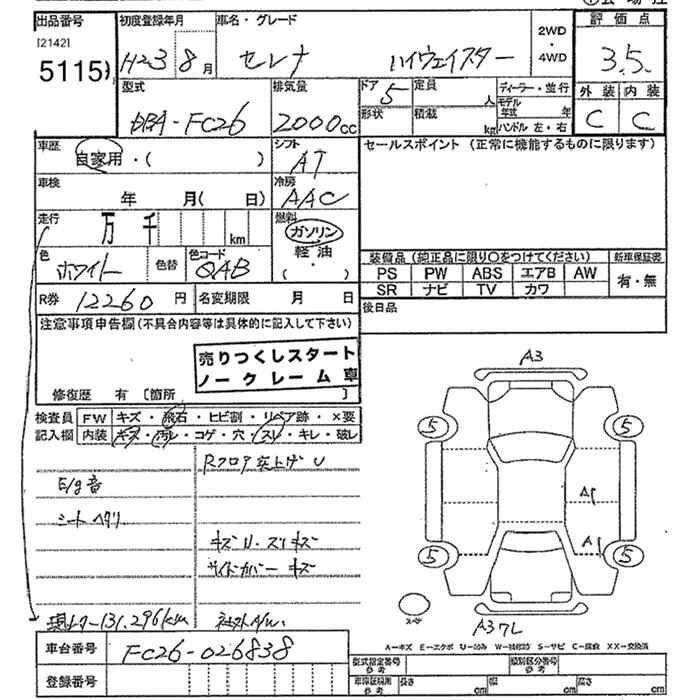 出品番号
[2142]
5115
初度登録年月
H23 8月
車名・グレード
セレナ ハイウェイスター
2WD
・
4WD
評価点
3.5
外装 内装
C C
型式
DBA-FC26
排気量
2000cc
ドア
5
形状
定員
人
積載
kg
ディーラー・並行
モデル年式 年
ハンドル 左・右
車歴
自家用・( )
シフト
AT
セールスポイント (正常に機能するものに限ります)
車検
年 月(日)
冷房
AAC
走行
万 千 km
燃料
ガソリン
軽油
( ・ )
色
ホワイト
色替
色コード
QAB
装備品(純正品に限り○をつけてください)
PS PW ABS エアB AW
SR ナビ TV カワ
新車保証書
有・無
R券 12260円
名変期限 月 日
後日品
注意事項申告欄(不具合内容等は具体的に記入して下さい)
売りつくしスタート
ノークレーム車
修復歴 有 〔箇所 〕
検査員
記入欄
FW キズ・飛石・ヒビ割・リペア跡・×要
内装 キズ・汚れ・コゲ・穴・スレ・キレ・破レ
Rフロア突上げU
E/g音
シートヘタリ
キズU・スリキズ
サイドカバーキズ
現メター131,296km
社外A/W.
A3
5 5
A1
A1
5 5
スペア
A37L
A-キズ E-エクボ U-凹み W-補修跡 S-サビ C-腐食 XX-交換済
車台番号
FC26-026838
登録番号
型式指定番号
参考
類別区分番号
参考
車検証税用
参考
長さ cm 幅 cm 高さ cm